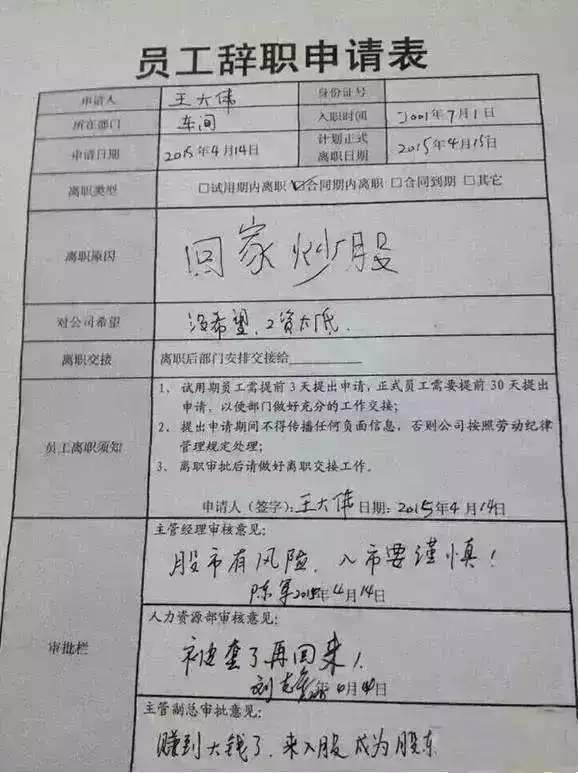 员工辞职申请表
申请人 王大伟 身份证号
所在部门 车间 入职时间 2001年7月1日
申请日期 2015年4月14日 计划正式离职日期 2015年4月15日
离职类型 □试用期内离职 ☑合同期内离职 □合同到期 □其它
离职原因 回家炒股
对公司希望 没希望、工资太低.
离职交接 离职后部门安排交接给
员工离职须知
1、试用期员工需提前3天提出申请,正式员工需要提前30天提出
申请,以便部门做好充分的工作交接;
2、提出申请期间不得传播任何负面信息,否则公司按照劳动纪律
管理规定处理;
3、离职审批后请做好离职交接工作。
申请人(签字):王大伟 日期:2015年4月14日
审批栏
主管经理审核意见:
股市有风险、入市要谨慎!
陈军 2015年4月14日
人力资源部审核意见:
被套了再回来!
刘 年4月14日
主管副总审批意见:
赚到大钱了、来入股成为股东